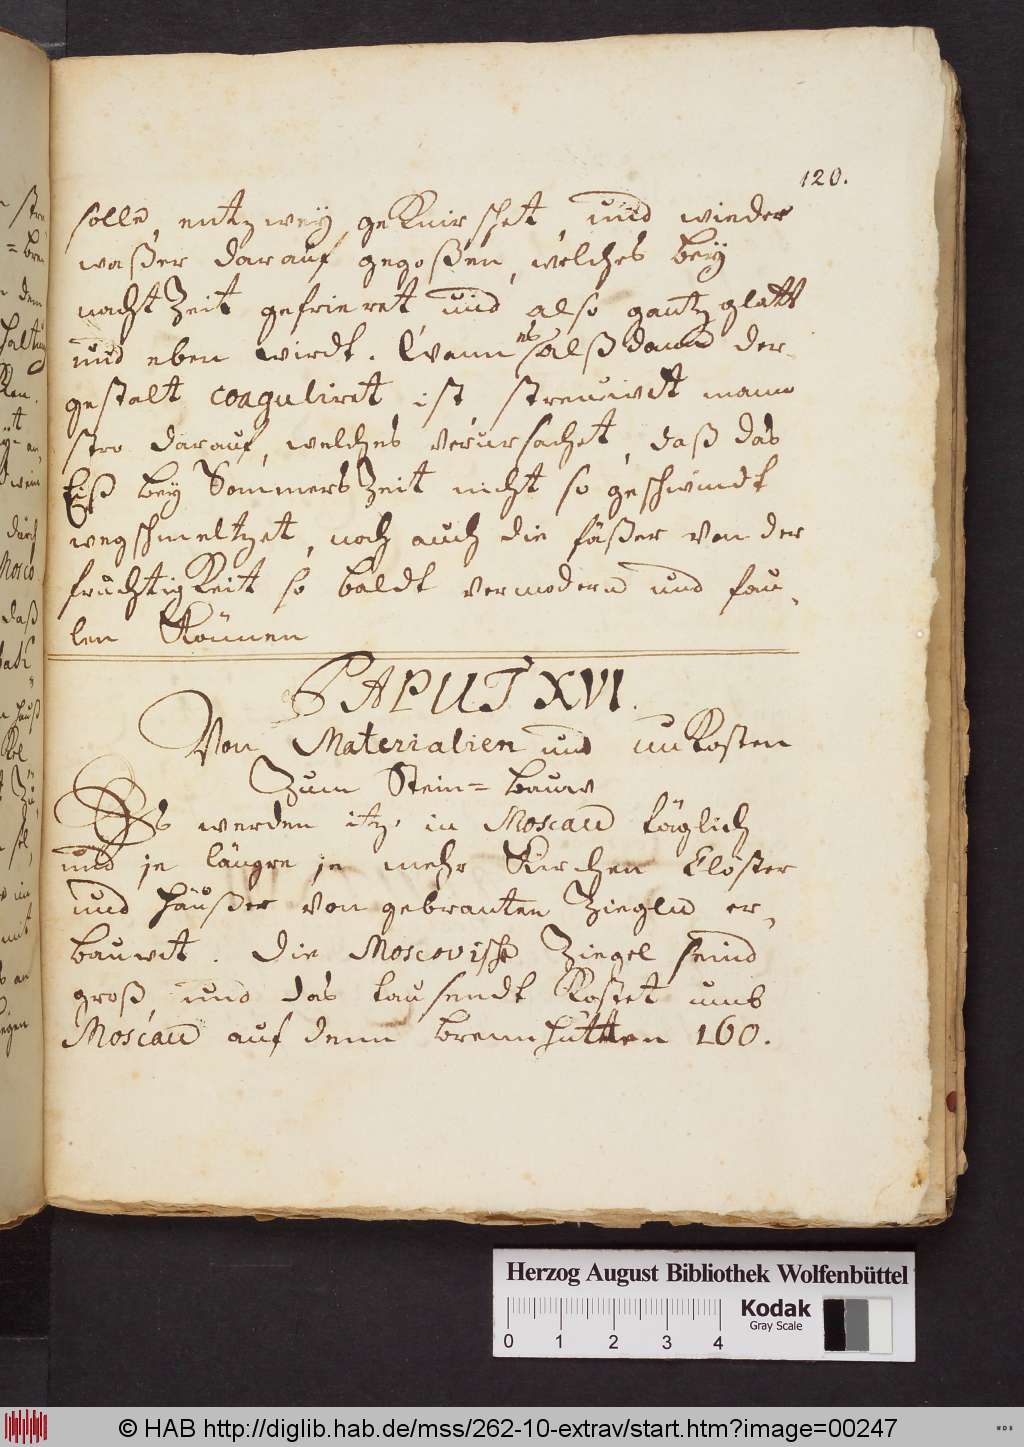 120.
solle, entzwey geKnirschet, und wieder
waßer darauf gegoßen, welches bey
nacht Zeit gefrieret und also gantz glatt
und eben wirdt. Wann es alßdann der-
gestalt coagulirt ist, streuwet mann
stro darauf, welches verursachet, daß das
Eiß bey Sommers Zeit nicht so geschwindt
wegschmeltzet, noch auch die fäßer von der
fruchtigKeit so baldt vermodern und fau-
len Können
CAPUT XVI.
Von Materialien und unKosten
Zum Stein= bauw
Es werden itz in Moscau täglich
und je längre je mehr Kirchen Clöster
und häußer von gebranten Zieglen er-
bauwt. Die Moscovische Ziegel seind
groß, und das tausendt Kostet umb
Moscau auf denn brennhütten 160.
Herzog August Bibliothek Wolfenbüttel
0 1 2 3 4
Kodak
Gray Scale
© HAB http://diglib.hab.de/mss/262-10-extrav/start.htm?image=00247